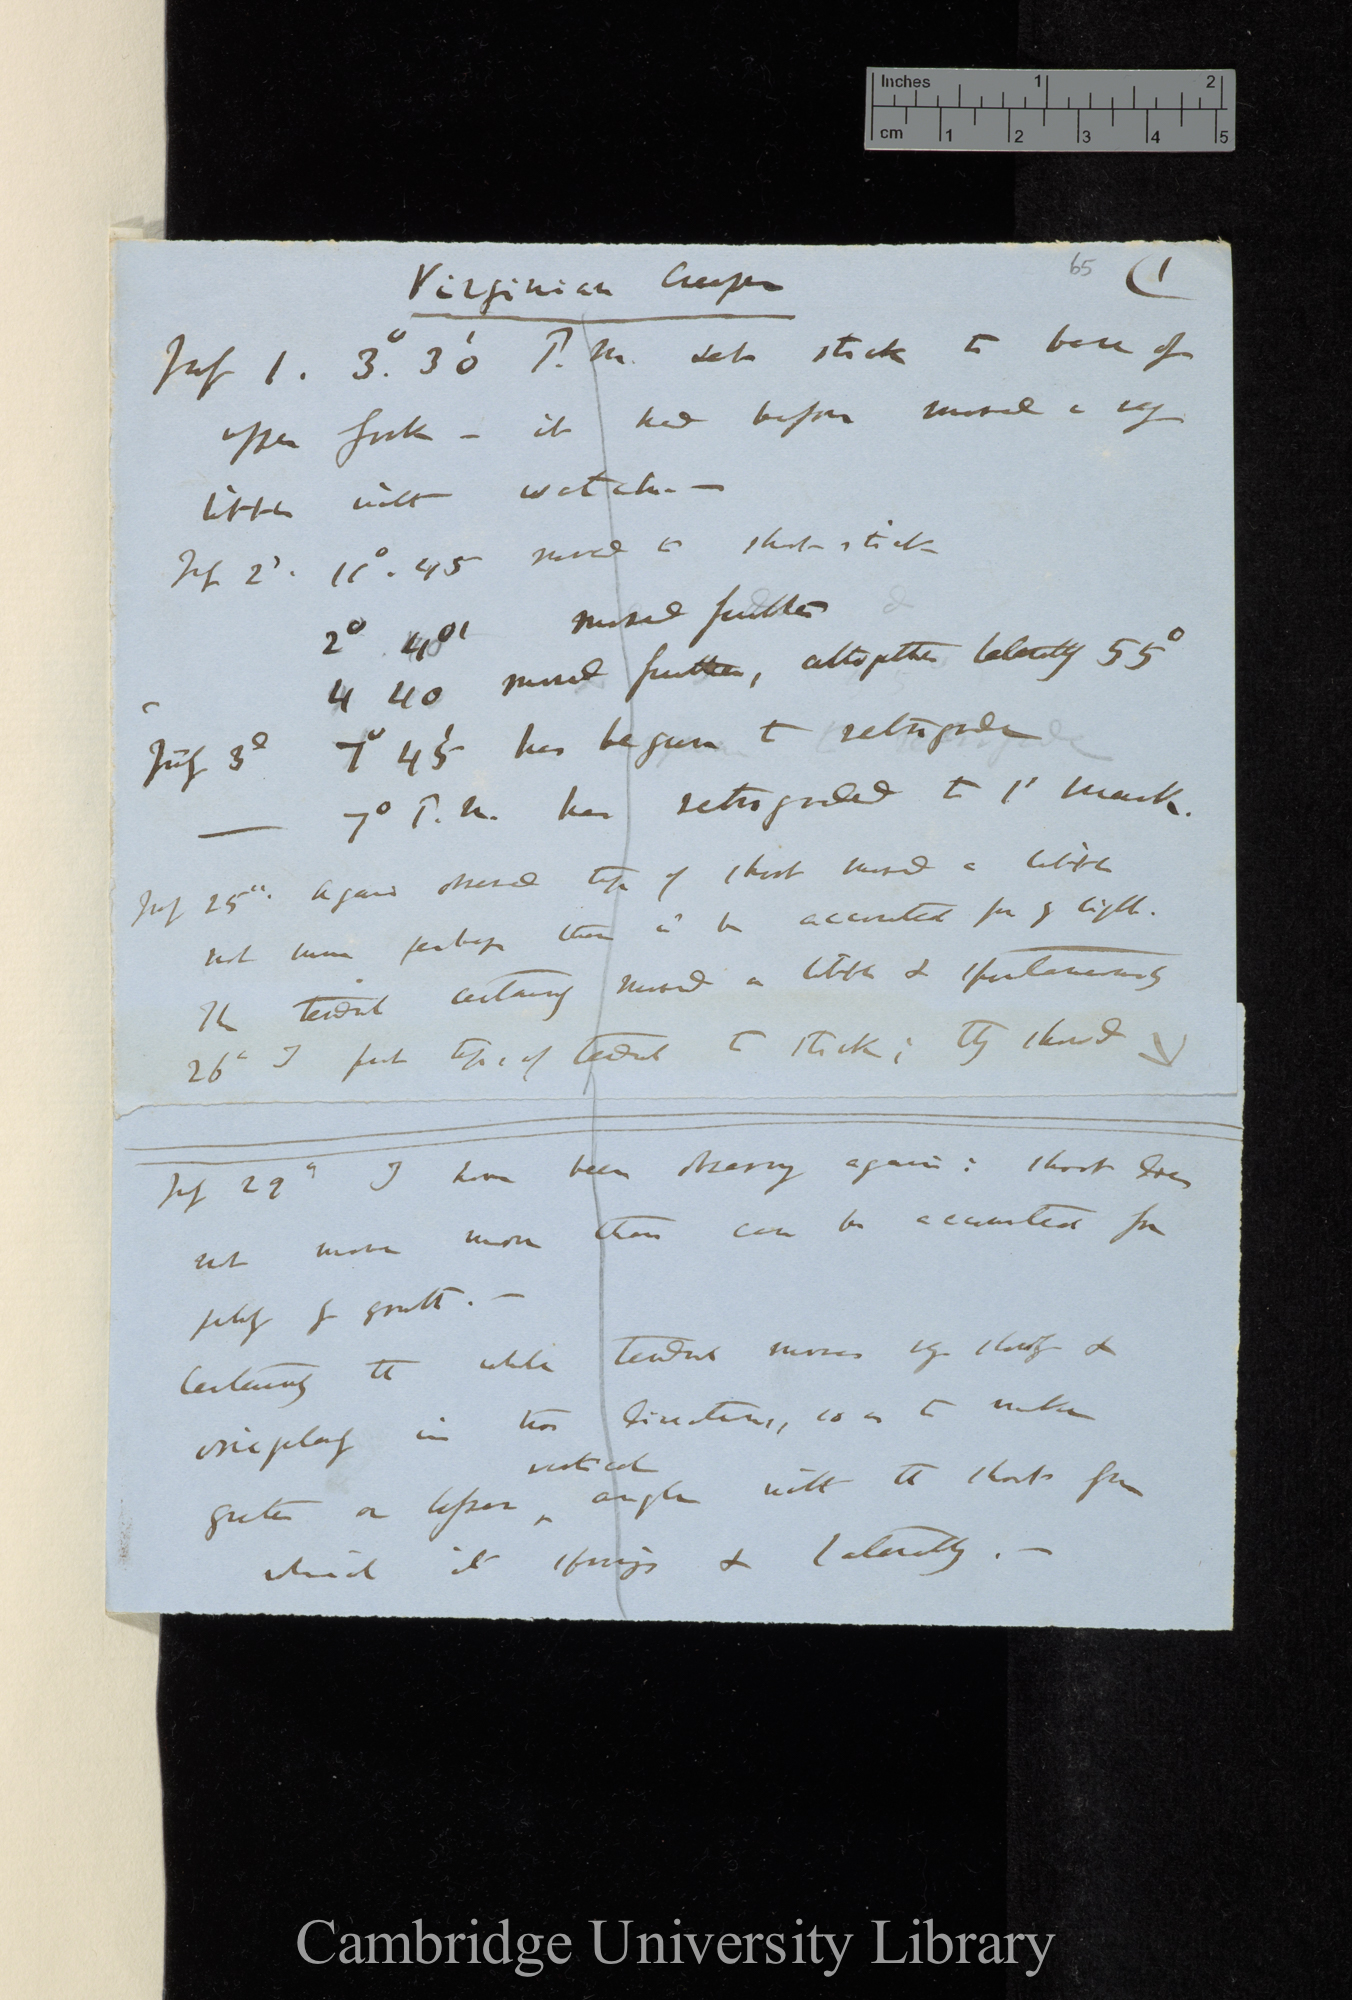 Inches 1 2
cm 1 2 3 4 5
65 (1
Virginian Creeper
July 1. 3°. 30' P.M. set stick to base of
upper fork — it had before moved a very
little with watch. —
July 2d. 11°. 45 moved to short stick
2° 40' moved further
4 40 moved further, altogether laterally 55°
July 3d 7° 45' has begun to retrograde
— 7° P.M. has retrograded to 1st mark.
July 25th. Again observed tip of shoot moved a little
not more perhaps than cd be accounted for by light.
The tendril certainly moved a little & spontaneously
26th I put tips of tendril to stick; they should
July 29th I have been observing again: shoot does
not move more than can be accounted for
by growth. —
Certainly the whole tendril moves very slowly &
in two directions, so as to make
vertical
greater or lesser ^ angle with the shoots from
which it springs & laterally. —
Cambridge University Library